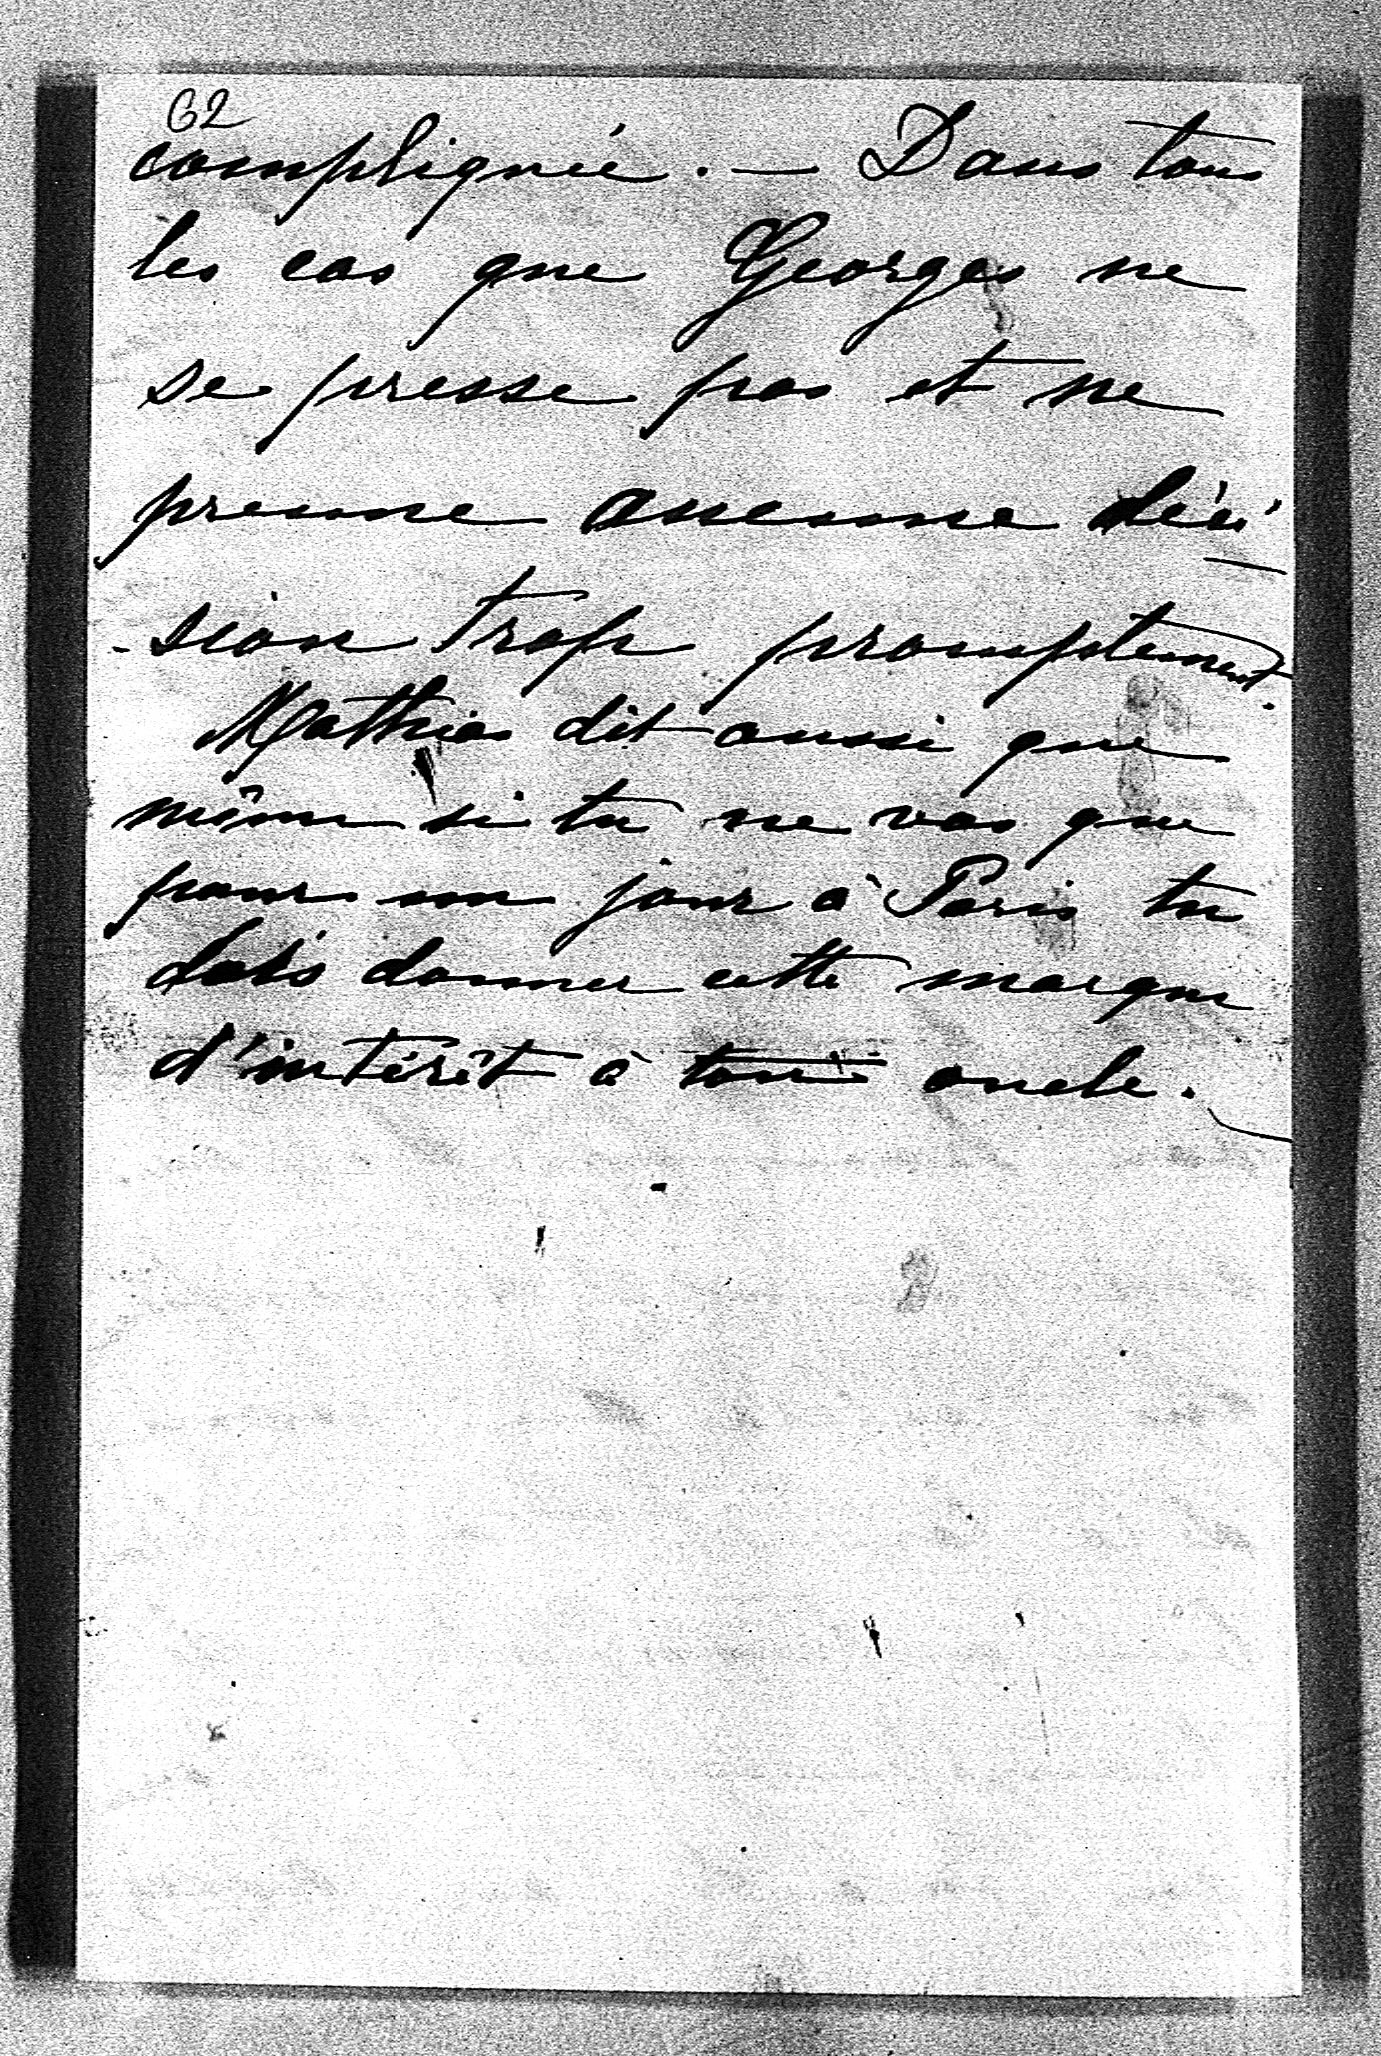 62
compliquée. — Dans tous
les cas que Georges ne
se presse pas et ne
prenne aucune déci
-sion trop promptement.
Mathias dit aussi que
même si tu ne vas que
pour un jour à Paris tu
dois donner cette marque
d'intérêt à ton oncle.